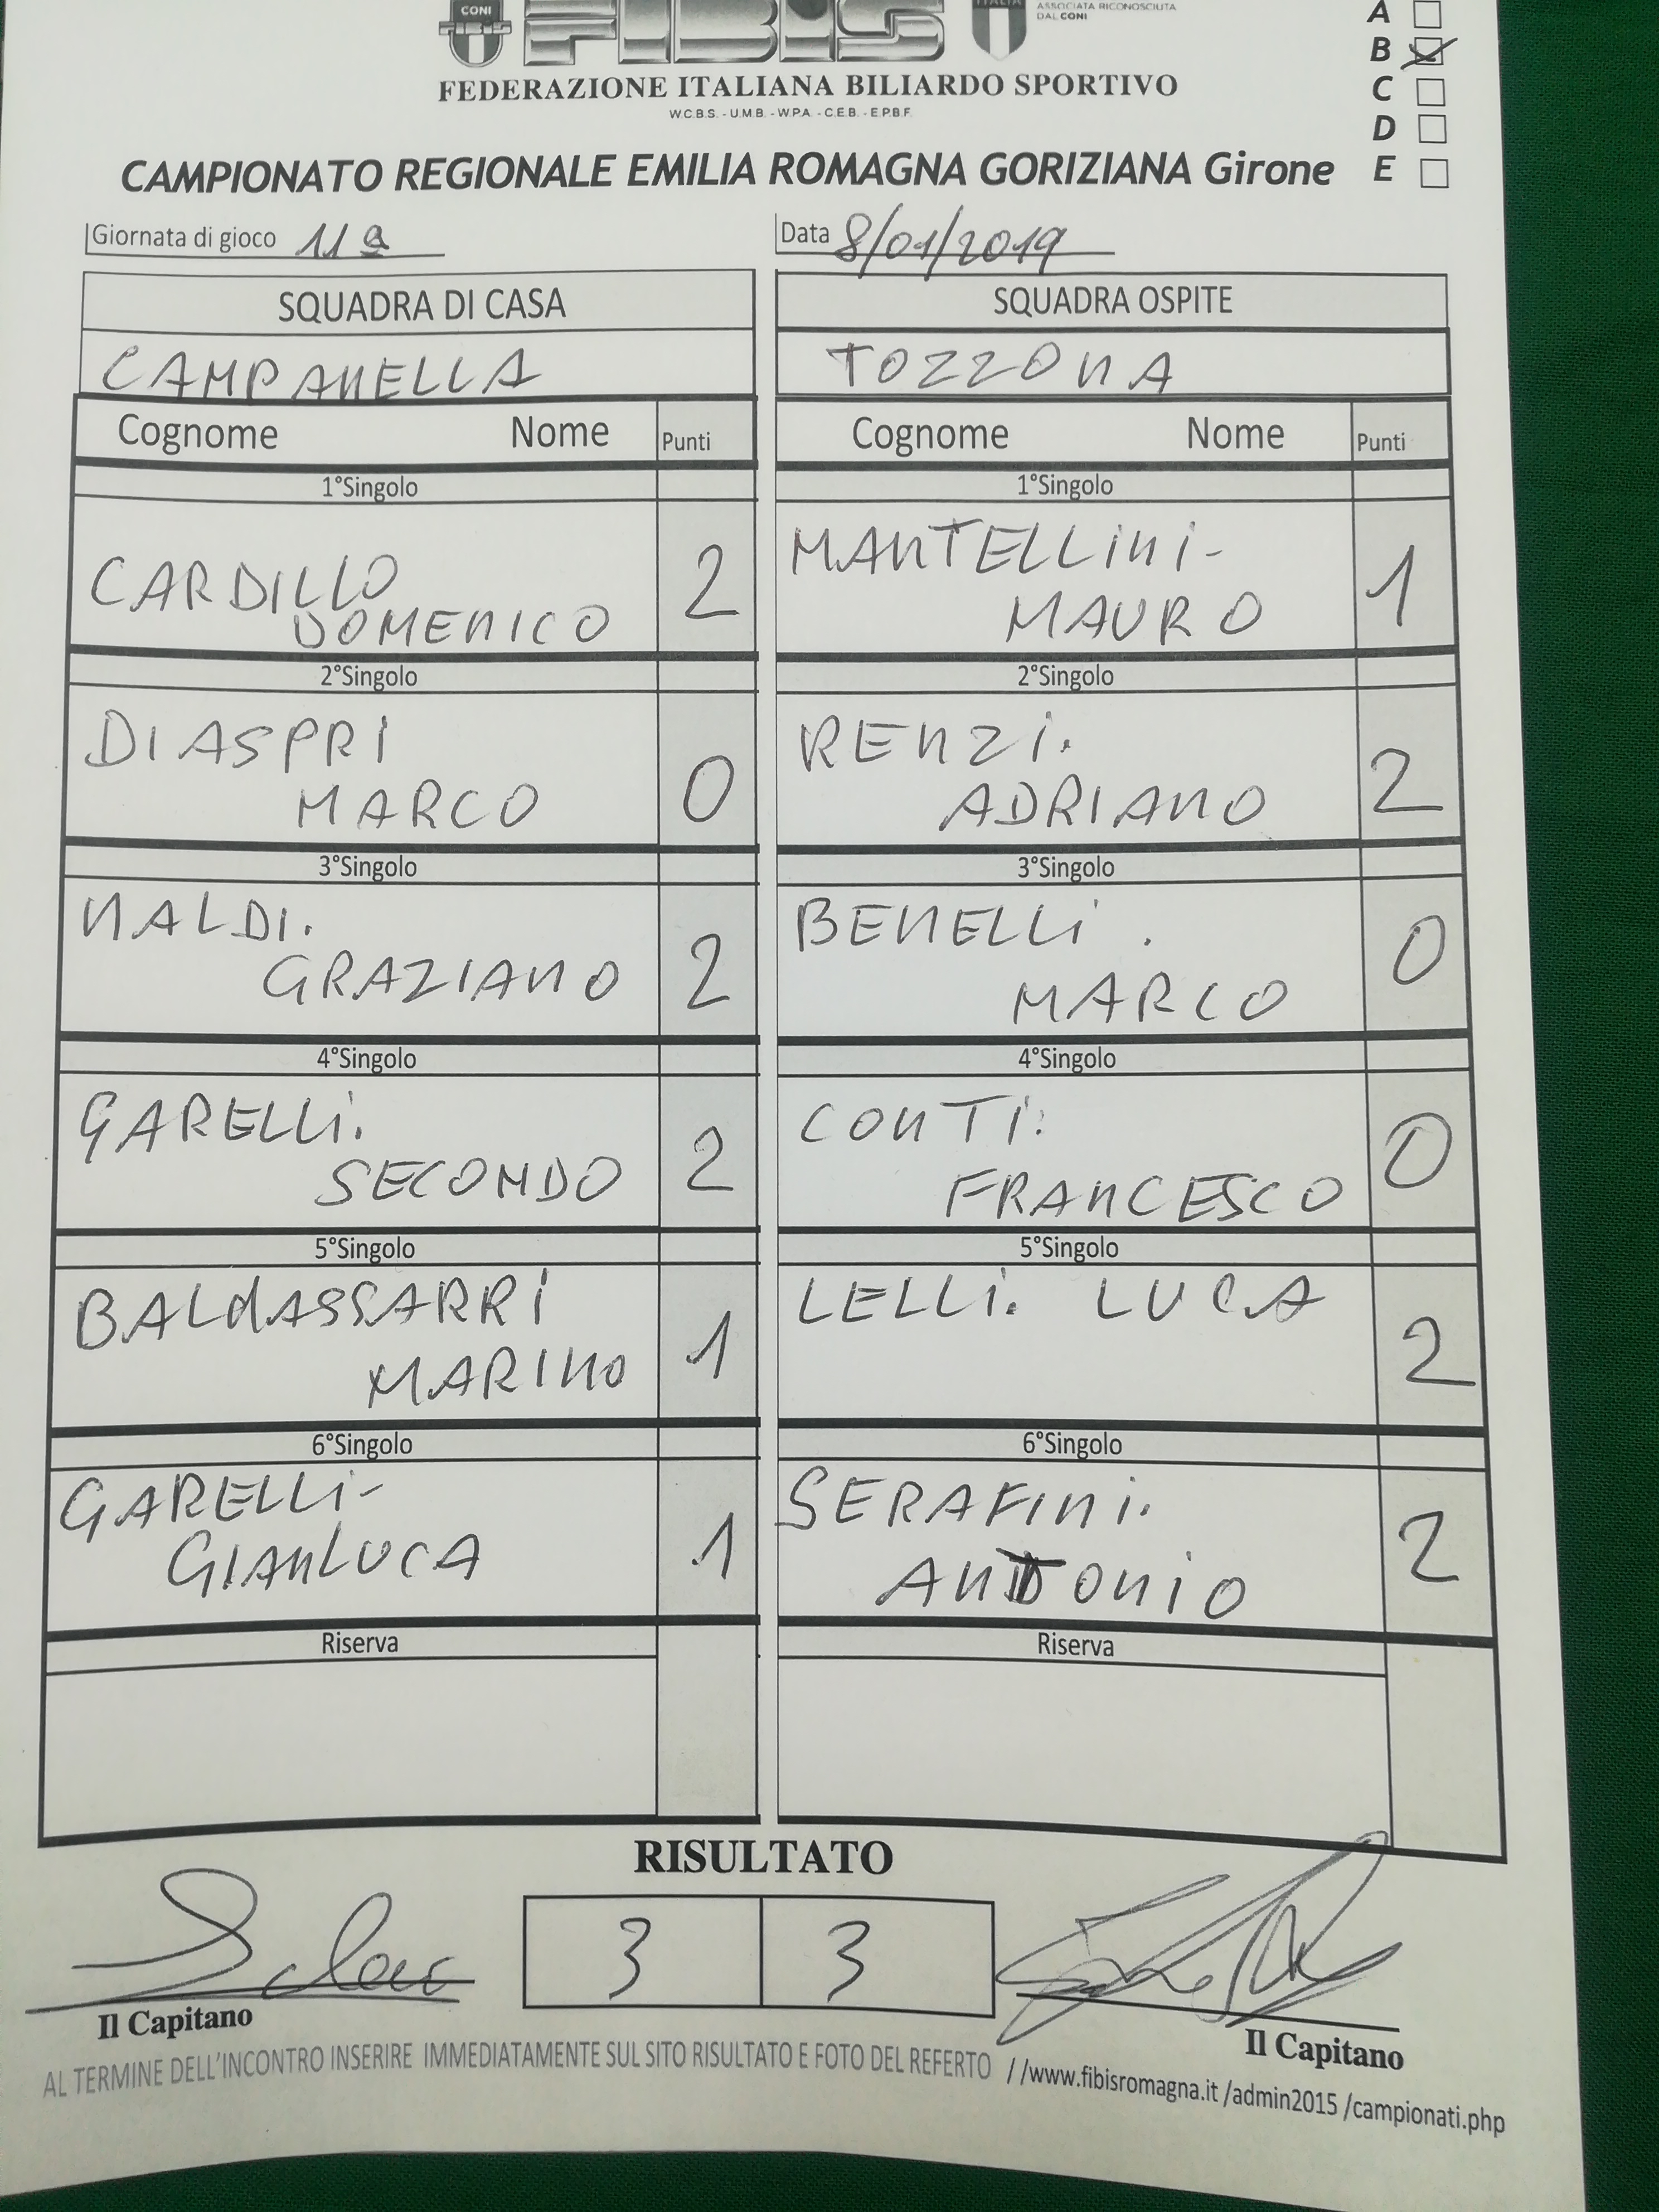 CONI
FIBIS
ITALIA
ASSOCIATA RICONOSCIUTA
DAL CONI
FEDERAZIONE ITALIANA BILIARDO SPORTIVO
W.C.B.S. - U.M.B. - W.P.A. - C.E.B. - E.P.B.F.
A
B
C
D
E
CAMPIONATO REGIONALE EMILIA ROMAGNA GORIZIANA Girone
Giornata di gioco 11ª
Data 8/01/2019
SQUADRA DI CASA
SQUADRA OSPITE
CAMPANELLA
TOZZONA
Cognome Nome Punti
Cognome Nome Punti
1°Singolo
1°Singolo
CARDILLO
DOMENICO
2
MANTELLINI-
MAURO
1
2°Singolo
2°Singolo
DIASPRI
MARCO
0
RENZI.
ADRIANO
2
3°Singolo
3°Singolo
NALDI.
GRAZIANO
2
BENELLI.
MARCO
0
4°Singolo
4°Singolo
GARELLI.
SECONDO
2
CONTI:
FRANCESCO
0
5°Singolo
5°Singolo
BALDASSARRI
MARINO
1
LELLI. LUCA
2
6°Singolo
6°Singolo
GARELLI-
GIANLUCA
1
SERAFINI.
ANTONIO
2
Riserva
Riserva
RISULTATO
3 3
Il Capitano
Il Capitano
AL TERMINE DELL'INCONTRO INSERIRE IMMEDIATAMENTE SUL SITO RISULTATO E FOTO DEL REFERTO //www.fibisromagna.it /admin2015 /campionati.php